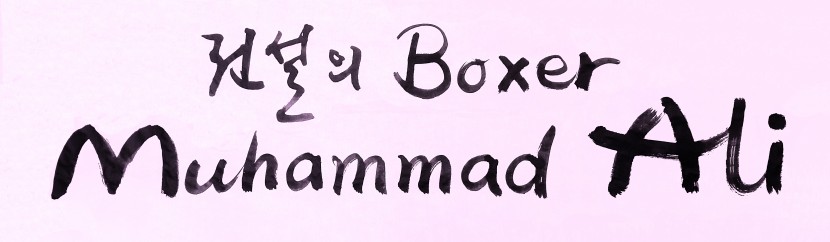 전설의 Boxer
Muhammad Ali